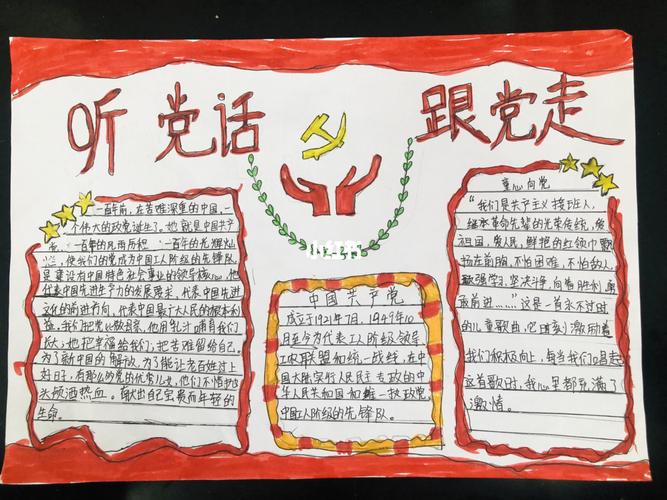 听党话 跟党走
一百年前,在苦难深重的中国,一
个伟大的政党诞生了。她就是中国共产
党 一百年的风雨历程 一百年的光辉灿
烂,使我们的党成为中国工人阶级的先锋队,
是建设有中国特色社会事业的领导核心,他
代表中国先进生产力的发展要求,代表中国先进
文化的前进方向,代表中国最广大人民的根本利
益。我们把党比做母亲,他用乳汁哺育我们
长大;她把幸福给我们;把苦难留给自己。
为了新中国的解放,为了能让老百姓过上
好日子,有那么的党的优秀儿女,他们不惜抛
头颅洒热血。献出自己宝贵而年轻的
生命。
小红书
中国共产党
成立于1921年7月,1949年10
月至今为代表工人阶级领导
工农联盟和统一战线,在中
国大陆实行人民民主专政的中
华人民共和国和唯一执政党,
中国工人阶级的先锋队。
童心向党
“我们是共产主义接班人,
继承革命先辈的光荣传统,爱
祖国,爱人民,鲜艳的红领巾飘
扬在前胸,不怕困难,不怕敌人,
顽强学习,坚决斗争,向着胜利,勇
敢前进……”这是一首永不过时
的儿童歌曲,它时刻激励着
我们积极向上,每当我们唱起
这首歌时,我心里都充满了
激情。